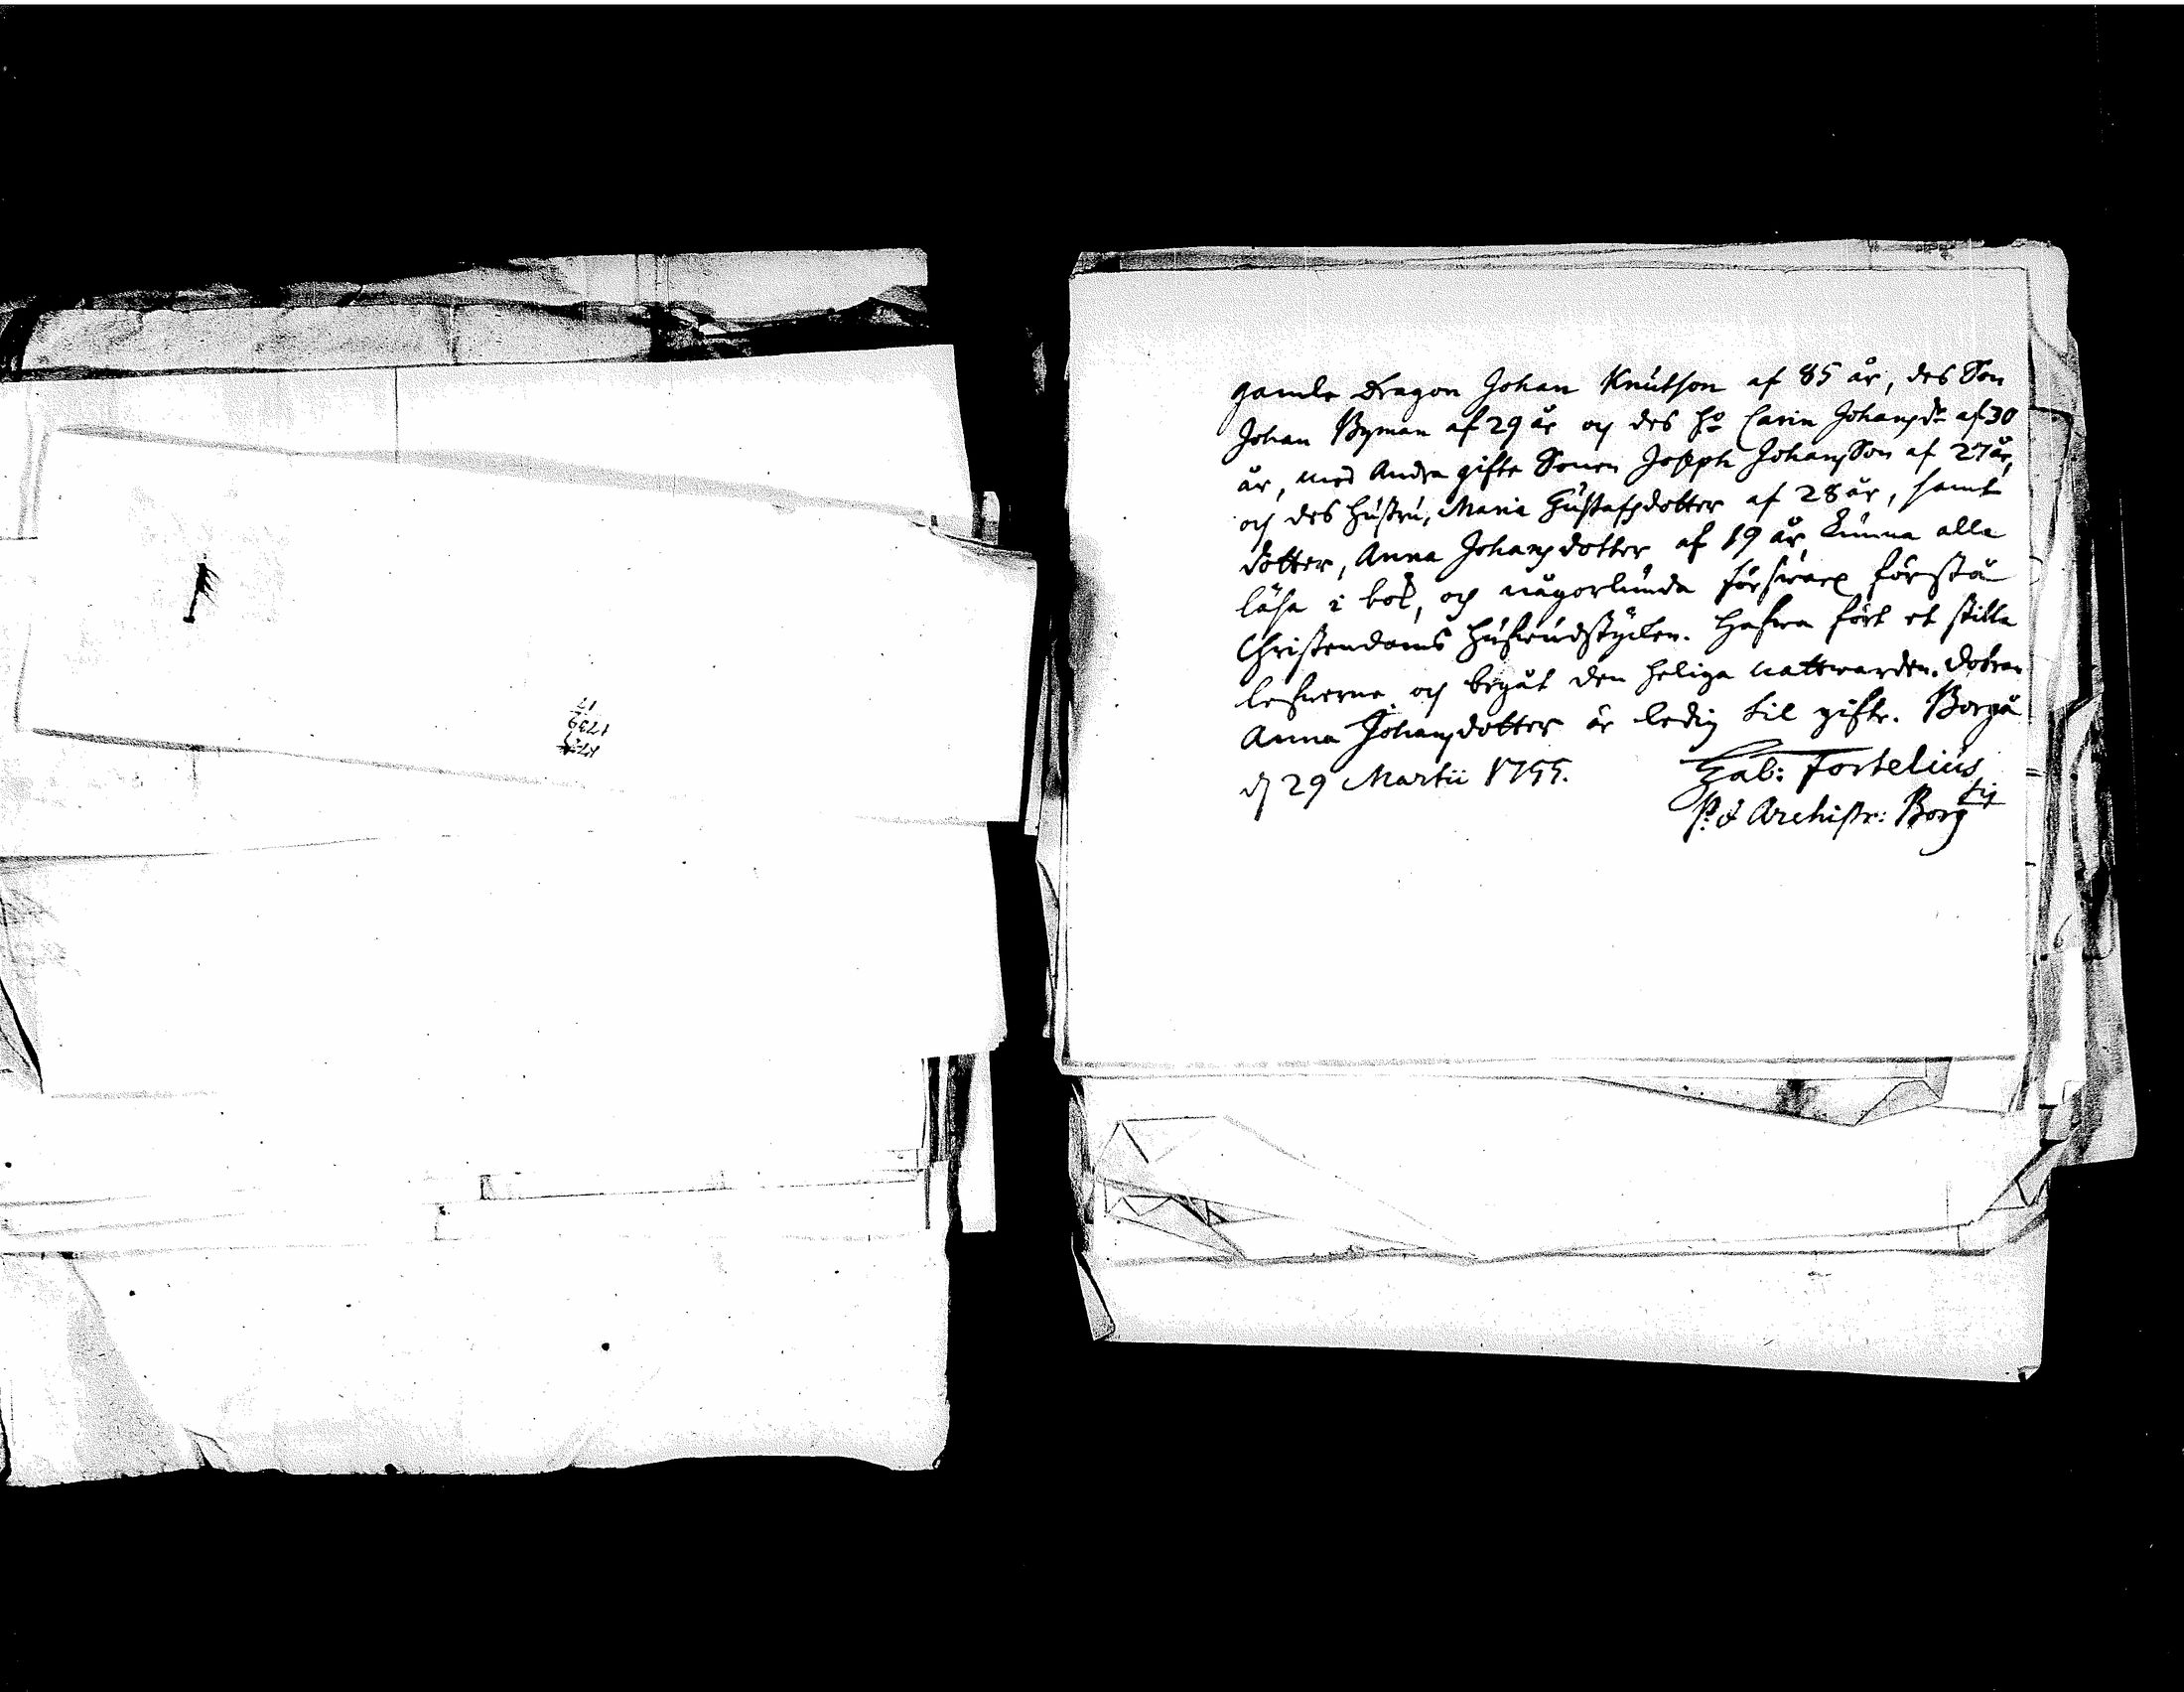 17
1739
gamle Dragon Johan Knutson af 85 år, des Son
Johan Byman af 29 år och des Ho Carin Johansdr af 30
år, med Andra gifte Sonen Joseph JohansSon af 27 år,
och des hustru, Maria Gustafsdotter af 28 år, samt
dotter, Anna Johansdotter af 19 år, kunna alla
läsa i bok, och någorlunda försvarl förstå
Christendoms hufvudstycken. Hafva fört et stilla
lefverne och begåt den heliga nattwarden. dotren
Anna Johansdotter är ledig til gifte. Borgå
d 29 Martii 1755.
Gab: Fortelius
P. & Archipr: Borg